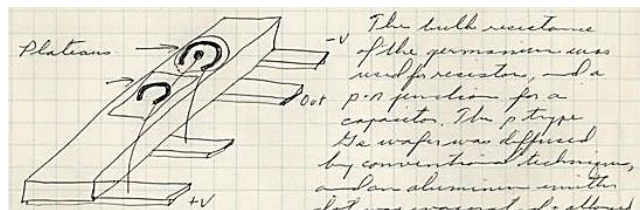 Plateaus
-V
Out
+V
The bulk resistance
of the germanium was
used for resistors, and a
p-n junction for a
capacitor. The p type
Ge wafer was diffused
by conventional techniques,
and an aluminum emitter
dot was evaporated & allowed